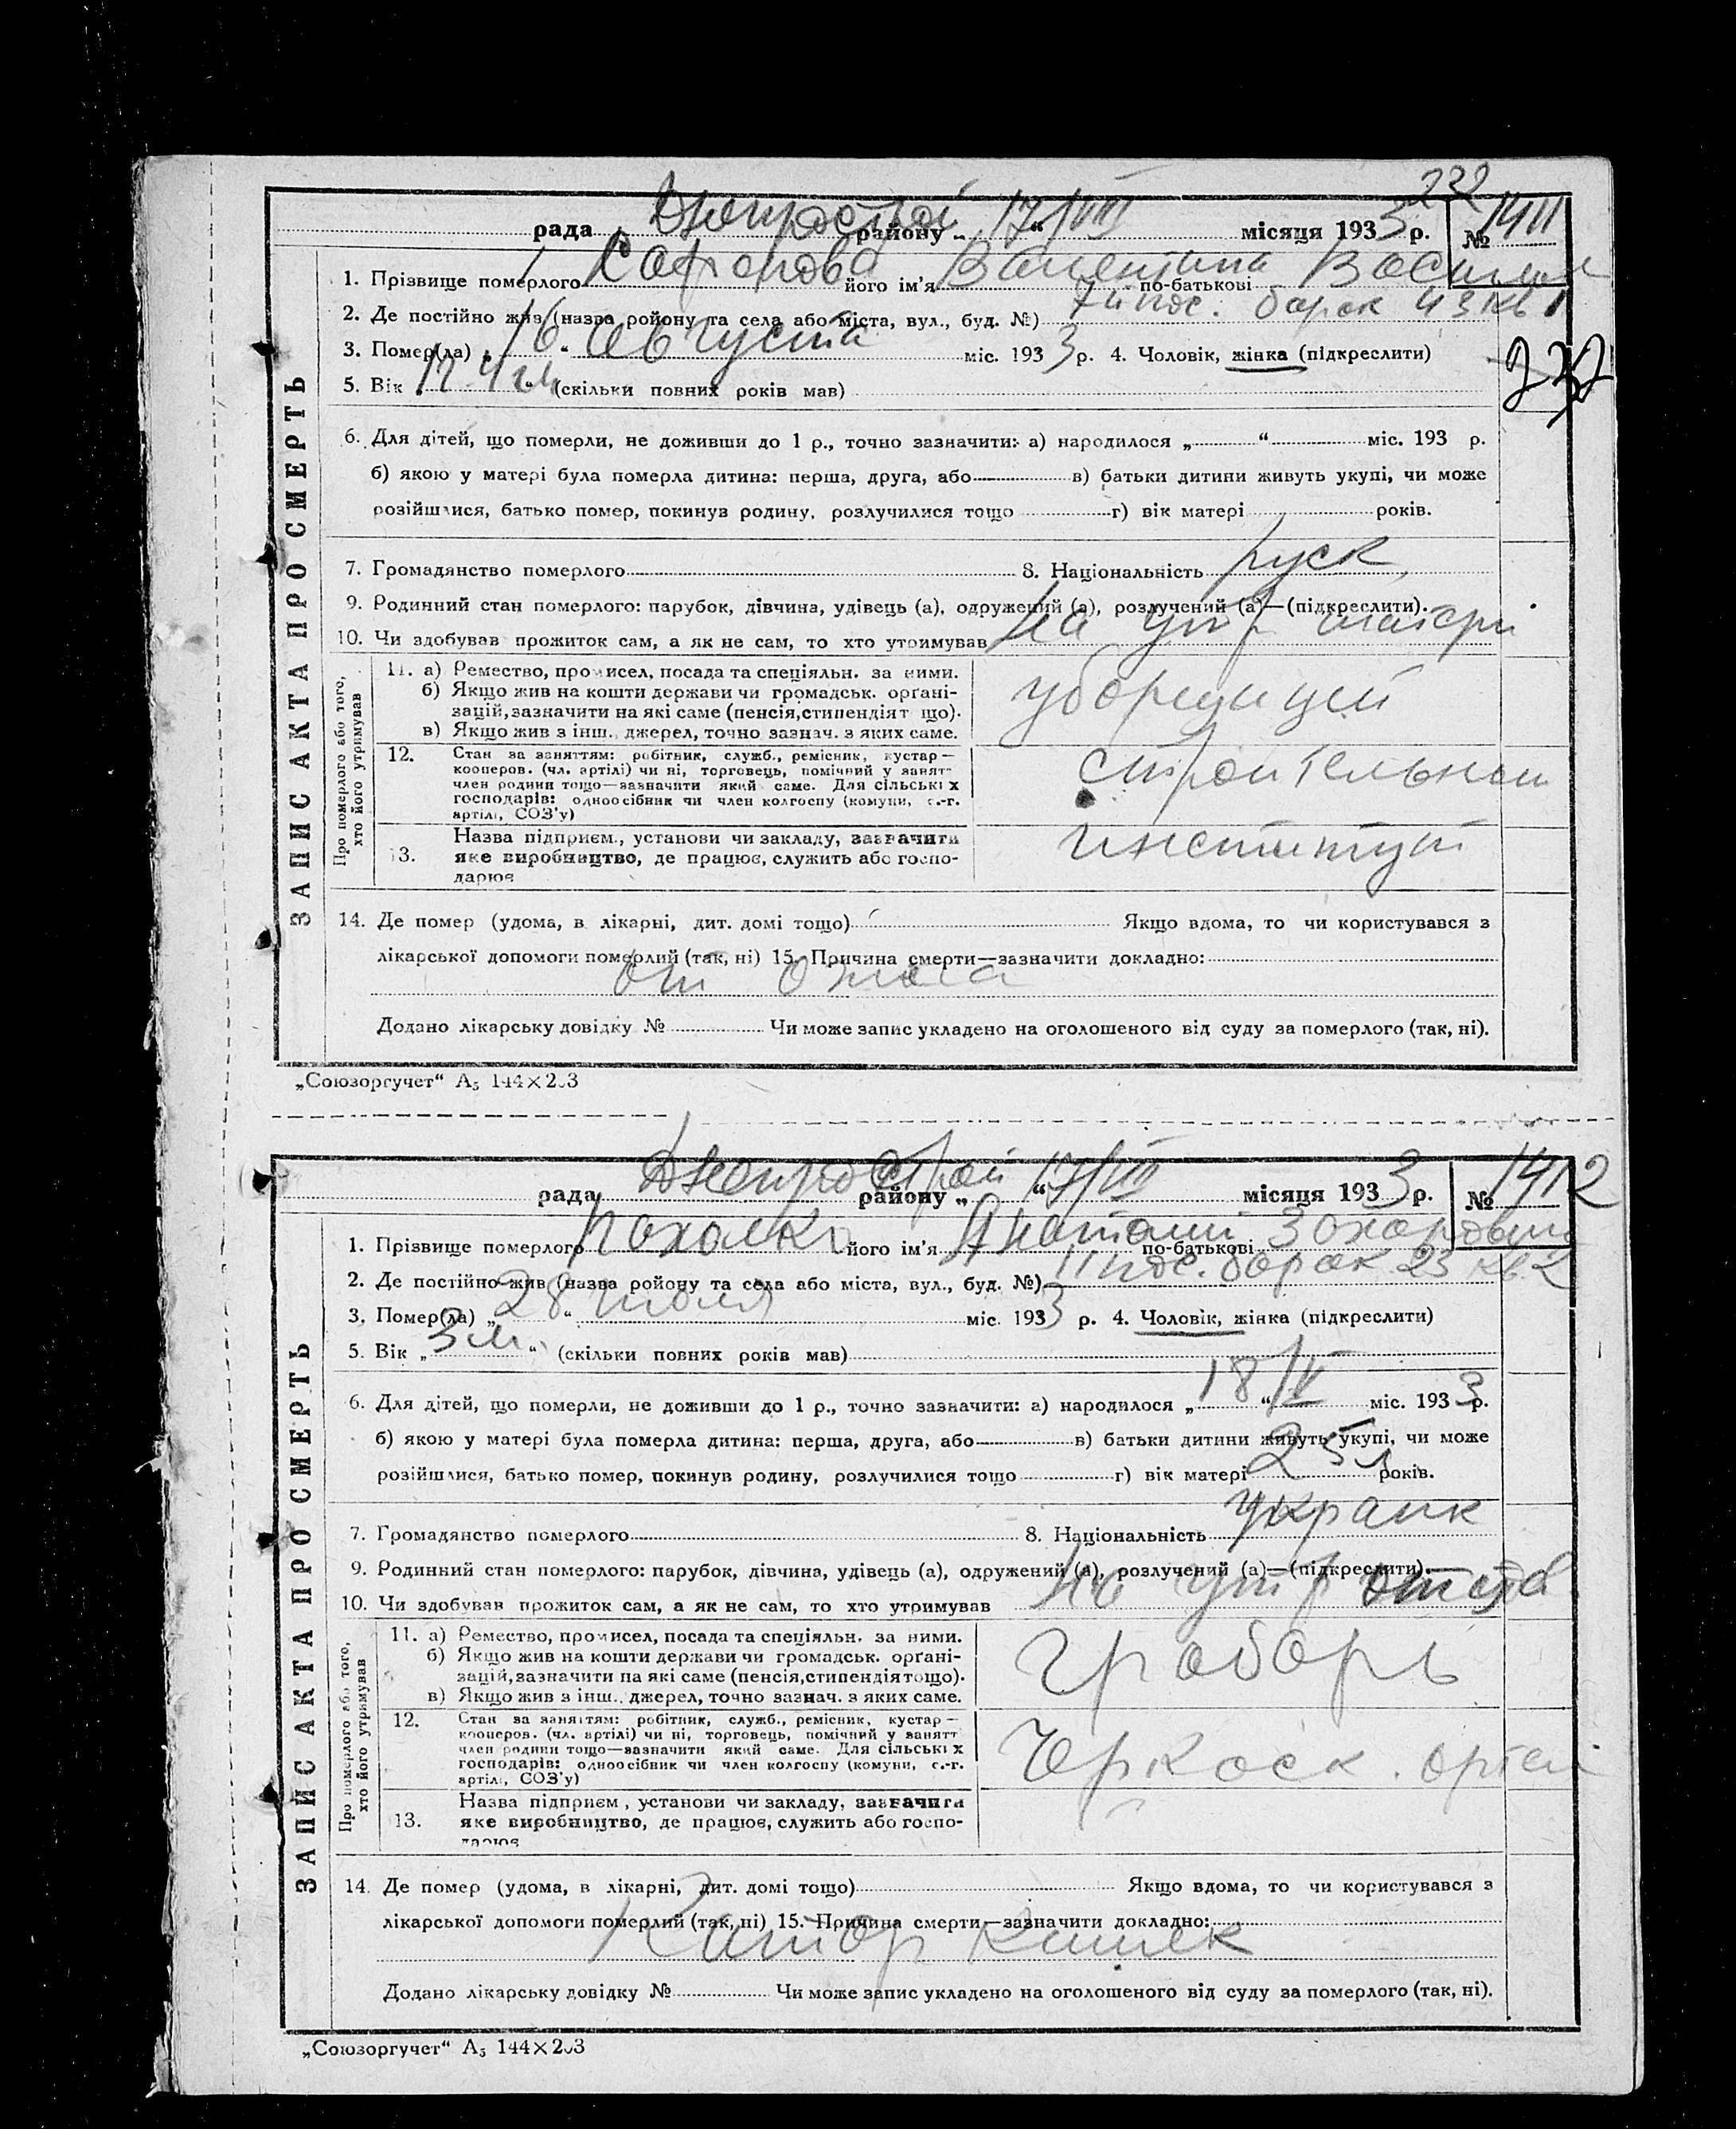 232
Днепрострой 17/VIII
рада районy „ “ місяця 1933 р. № 1411
1. Прізвище померлого Сафонова його ім'я Валентина по-батькові Васильев
2. Де постійно жив (назва району та села або міста, вул., буд. №) 7й пос. барак 43 кв 1
3. Помер(ла) „16“ Августа міс. 1933 р. 4. Чоловік, жінка (підкреслити)
232
5. Вік (скільки повних років мав)
6. Для дітей, що померли, не доживши до 1 р., точно зазначити: а) народилося „ “ міс. 193 р.
б) якою у матері була померла дитина: перша, друга, або в) батьки дитини живуть укупі, чи може
розійшлися, батько помер, покинув родину, розлучилися тощо г) вік матері років.
7. Громадянство померлого 8. Національність руск
9. Родинний стан померлого: парубок, дівчина, удівець (а), одружений (а), розлучений (а)—(підкреслити).
10. Чи здобував прожиток сам, а як не сам, то хто утримував на утр матери
11. а) Ремество, промисел, посада та спеціяльн. за ними.
б) Якщо жив на кошти держави чи громадськ. орґані-
зацій, зазначити на які саме (пенсія, стипендія т що).
в) Якщо жив з інш. джерел, точно зазнач. з яких саме.
уборщицей
12. Стан за заняттям: робітник, служб., ремісник, кустар—
кооперов. (чл. артілі) чи ні, торговець, помічний у занят-
член родини тощо—зазначити який саме. Для сільських
господарів: одноосібник чи член колгоспу (комуни, с.-г.
артілі, СОЗ'у)
строительном
13. Назва підприєм., установи чи закладу, зазначити
яке виробництво, де працює, служить або госпо-
дарює
институт
Про померлого або того,
хто його утримував
14. Де помер (удома, в лікарні, дит. домі тощо) Якщо вдома, то чи користувався з
лікарської допомоги померлий (так, ні) 15. Причина смерти—зазначити докладно:
от ожога
Додано лікарську довідку № Чи може запис укладено на оголошеного від суду за померлого (так, ні).
ЗАПИС АКТА ПРО СМЕРТЬ
„Союзоргучет“ А5 144×203
Днепрострой 17/VIII
рада району „ “ місяця 1933 р. № 1412
1. Прізвище померлого Похалко його ім'я Анатолий по-батькові Захарович
2. Де постійно жив (назва району та села або міста, вул., буд. №) 11 пос. барак 23 кв. 2
3. Помер(ла) „28“ июля міс. 1933 р. 4. Чоловік, жінка (підкреслити)
5. Вік „3 м.“ (скільки повних років мав)
6. Для дітей, що померли, не доживши до 1 р., точно зазначити: а) народилося „18/IV“ міс. 1933 р.
б) якою у матері була померла дитина: перша, друга, або в) батьки дитини живуть укупі, чи може
розійшлися, батько помер, покинув родину, розлучилися тощо г) вік матері 25 л років.
7. Громадянство померлого 8. Національність украик
9. Родинний стан померлого: парубок, дівчина, удівець (а), одружений (а), розлучений (а)—(підкреслити).
10. Чи здобував прожиток сам, а як не сам, то хто утримував на утр отца
11. а) Ремество, промисел, посада та спеціяльн. за ними.
б) Якщо жив на кошти держави чи громадськ. орґані-
зацій, зазначити на які саме (пенсія, стипендія тощо).
в) Якщо жив з інш. джерел, точно зазнач. з яких саме.
грабарь
12. Стан за заняттям: робітник, служб., ремісник, кустар—
кооперов. (чл. артілі) чи ні, торговець, помічний у занятт
член родини тощо—зазначити який саме. Для сільських
господарів: одноосібник чи член колгоспу (комуни, с.-г.
артілі, СОЗ'у)
Черкасск. артел
13. Назва підприєм., установи чи закладу, зазначити
яке виробництво, де працює, служить або госпо-
дарює
Про померлого або того,
хто його утримував
14. Де помер (удома, в лікарні, дит. домі тощо) Якщо вдома, то чи користувався з
лікарської допомоги померлий (так, ні) 15. Причина смерти—зазначити докладно:
Катар кишек
Додано лікарську довідку № Чи може запис укладено на оголошеного від суду за померлого (так, ні).
ЗАПИС АКТА ПРО СМЕРТЬ
„Союзоргучет“ А5 144×203